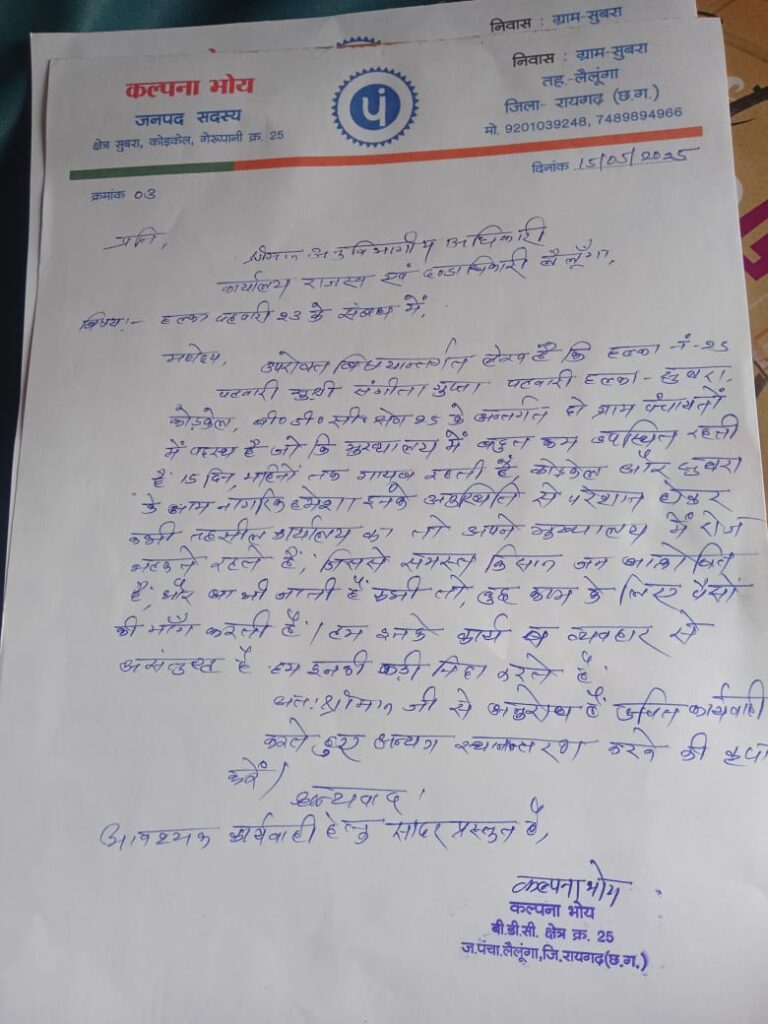 निवास : ग्राम-सुबरा
कल्पना भोय
जनपद सदस्य
क्षेत्र सुबरा, कोड़केल, गेरूपानी क्र. 25
पं
निवास : ग्राम-सुबरा
तह.-लैलूंगा
जिला- रायगढ़ (छ.ग.)
मो. 9201039248, 7489894966
क्रमांक 03
दिनांक 15/05/2025
प्रति,
श्रीमान अनुविभागीय अधिकारी
कार्यालय राजस्व एवं दण्डाधिकारी लैलूँगा,
विषय:- हल्का पटवारी 23 के संबंध में,
महोदय, उपरोक्त विषयान्तर्गत लेख है कि हल्का नं-25
पटवारी सुश्री संगीता गुप्ता पटवारी हल्का - सुबरा,
कोड़केल, बी० डी० सी० क्षेत्र 25 के अन्तर्गत दो ग्राम पंचायतों
में पदस्थ है जो कि मुख्यालय में बहुत कम उपस्थित रहती
है 15 दिन, महिनों तक गायब रहती हैं कोड़केल और सुबरा
के आम नागरिक हमेशा इनके से परेशान होकर
कभी तहसील कार्यालय का तो अपने मुख्यालय में रोज
भटकते रहते हैं, जिससे समस्त किसान जन
हैं, और आ भी जाती हैं कभी तो, कुछ काम के लिए पैसों
की माँग करती हैं। हम इनके कार्य व्यवहार से
असंतुष्ट है हम इनकी कड़ी निंदा करते हैं
अतः श्रीमान जी से अनुरोध हैं उचित कार्यवाही
करते हुए अन्यत्र स्थानान्तरण करने की कृपा
करें।
धन्यवाद!
आवश्यक कार्यवाही हेतु सादर प्रस्तुत है,
कल्पना भोय
कल्पना भोय
बी.डी.सी. क्षेत्र क्र. 25
ज.पंचा.लैलूंगा,जि.रायगढ़(छ.ग.)